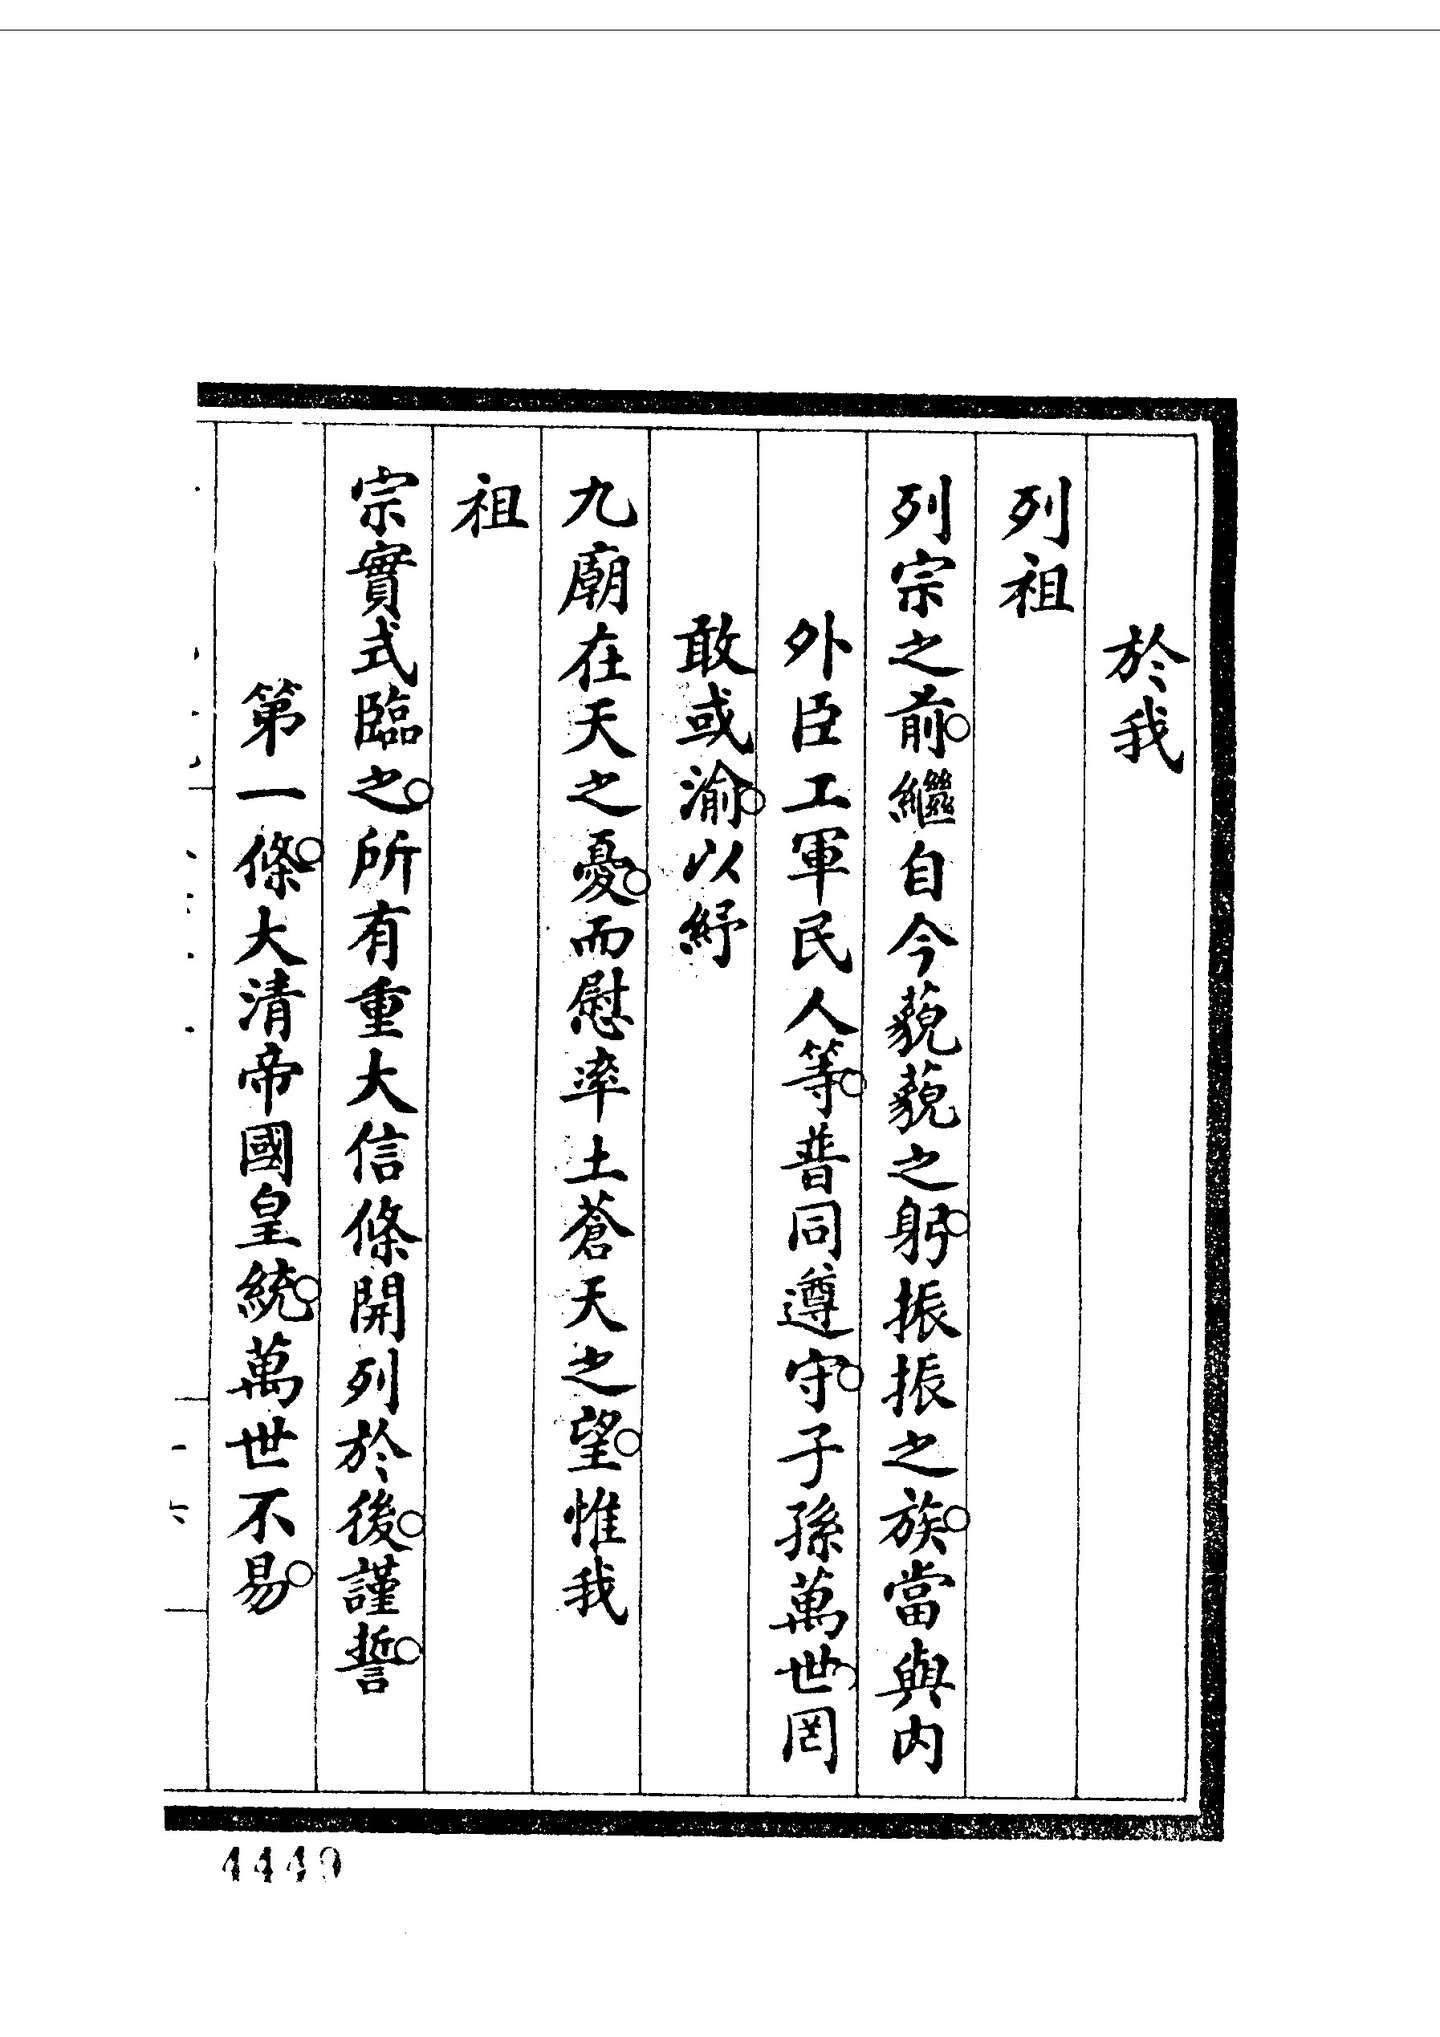 於我
列祖
列宗之前。繼自今藐藐之躬。振振之族。當與內
外臣工軍民人等。普同遵守。子孫萬世。罔
敢或渝。以紓
九廟在天之憂。而慰率土蒼天之望。惟我
祖
宗實式臨之。所有重大信條開列於後。謹誓。
第一條。大清帝國皇統。萬世不易。
4449